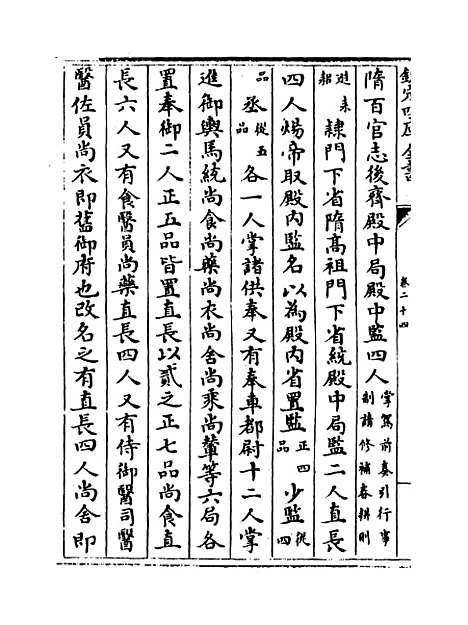 欽定四庫全書　卷二十四
隋百官志後齊殿中局殿中監四人掌駕前奏引行事制請修補春耕則
進耒耜隸門下省隋高祖門下省統殿中局監二人直長
四人煬帝取殿内監名以為殿内省置監正四品少監從四
品丞從五品各一人掌諸供奉又有奉車都尉十二人掌
進御輿馬統尚食尚藥尚衣尚舍尚乘尚輦等六局各
置奉御二人正五品皆置直長以貳之正七品尚食直
長六人又有食醫員尚藥直長四人又有侍御醫司醫
醫佐員尚衣即舊御府也改名之有直長四人尚舍即